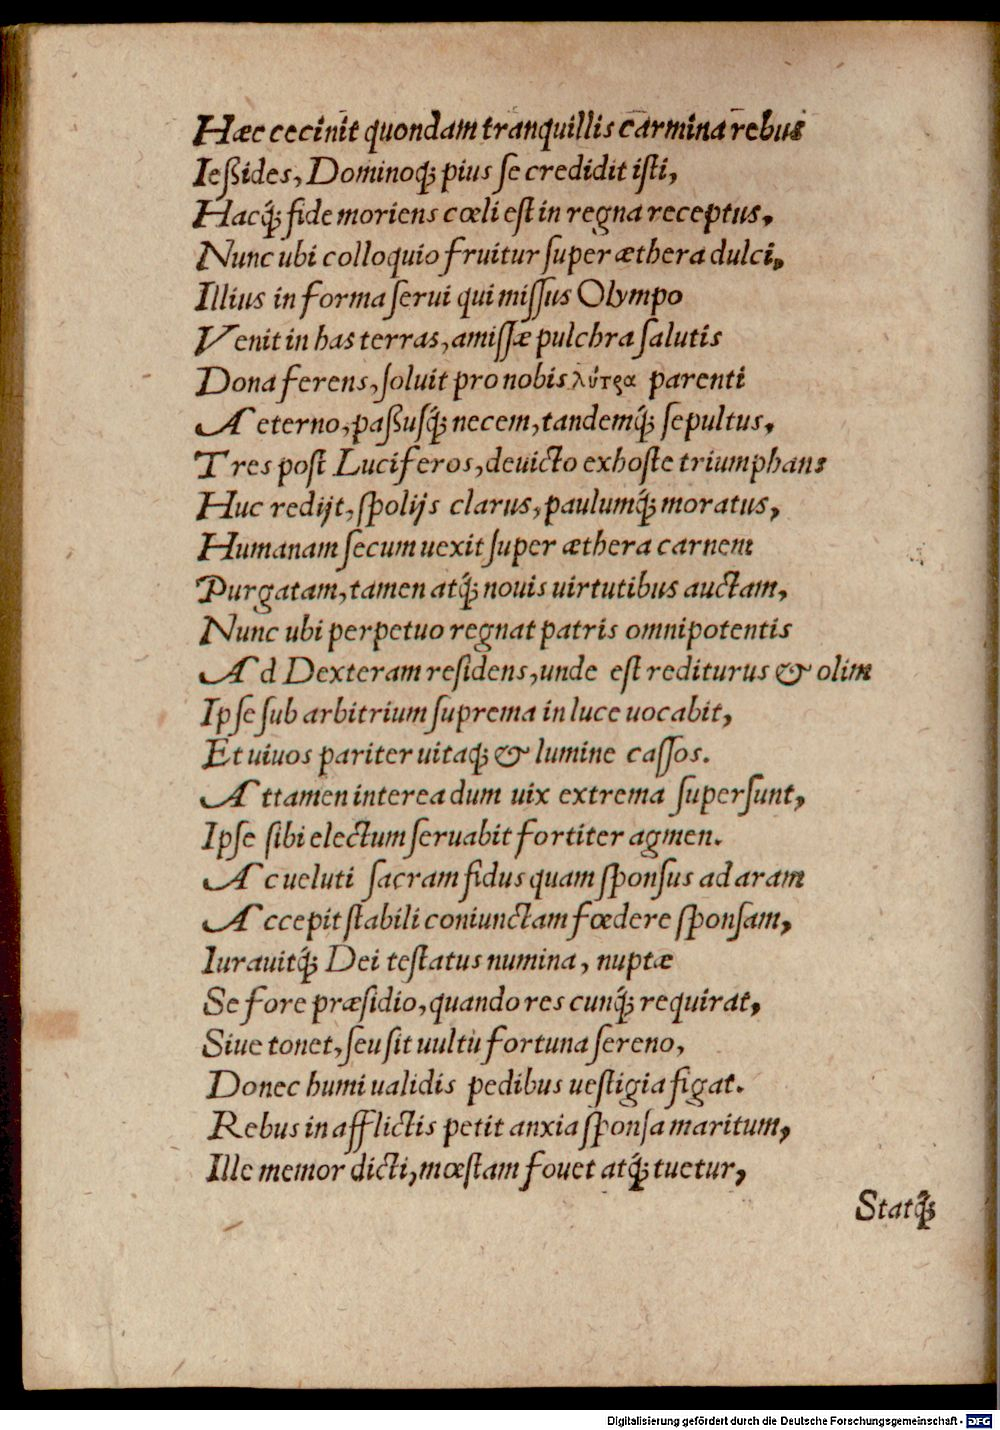 Hæc cecinit quondam tranquillis carmina rebus
Ießides, Dominoq́; pius ſe credidit iſti,
Hacq́; fide moriens cœli eſt in regna receptus,
Nunc ubi colloquio fruitur ſuper æthera dulci,
Illius in forma ſerui qui miſſus Olympo
Venit in has terras, amiſſæ pulchra ſalutis
Dona ferens, ſoluit pro nobis λύτρα parenti
Aeterno, paßusq́; necem, tandemq́; ſepultus,
Tres poſt Luciferos, deuicto exhoſte triumphans
Huc redijt, ſpolijs clarus, paulumq́; moratus,
Humanam ſecum uexit ſuper æthera carnem
Purgatam, tamen atq́; nouis uirtutibus auctam,
Nunc ubi perpetuo regnat patris omnipotentis
Ad Dexteram reſidens, unde eſt rediturus & olim
Ipſe ſub arbitrium ſuprema in luce uocabit,
Et uiuos pariter uitaq́; & lumine caſſos.
Attamen interea dum uix extrema ſuperſunt,
Ipſe ſibi electum ſeruabit fortiter agmen.
Ac ueluti ſacram fidus quam ſponſus ad aram
Accepit ſtabili coniunctam fœdere ſponſam,
Iurauitq́; Dei teſtatus numina, nuptæ
Se fore præſidio, quando res cunq́; requirat,
Siue tonet, ſeu ſit uultu fortuna ſereno,
Donec humi ualidis pedibus ueſtigia figat.
Rebus in afflictis petit anxia ſponſa maritum,
Ille memor dicti, mœſtam fouet atq́; tuetur,
Statq́;
Digitalisierung gefördert durch die Deutsche Forschungsgemeinschaft - DFG